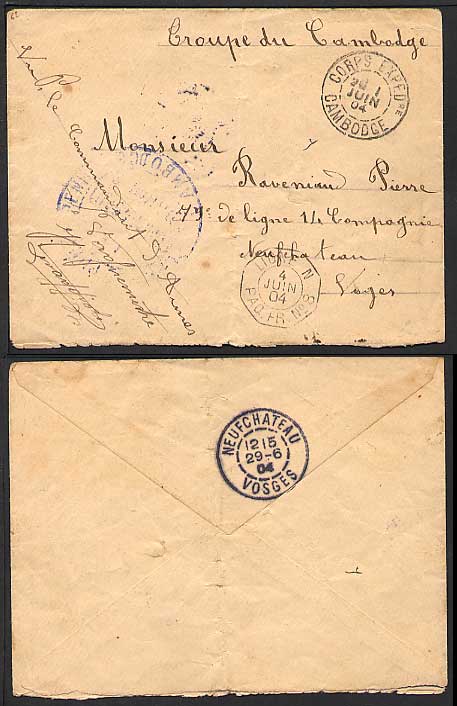 Troupe du Cambodge
CORPS EXPED.RE
1
JUIN
04
CAMBODGE
Vu P. le Commandant d'Armes
Monsieur
Raveniaud Pierre
79e de ligne 14 Compagnie
Neufchateau
Vosges
CAMBODGE
LIGNE N
4
JUIN
04
PAQ. FR. No 8
NEUFCHATEAU
12 15
29-6
04
VOSGES